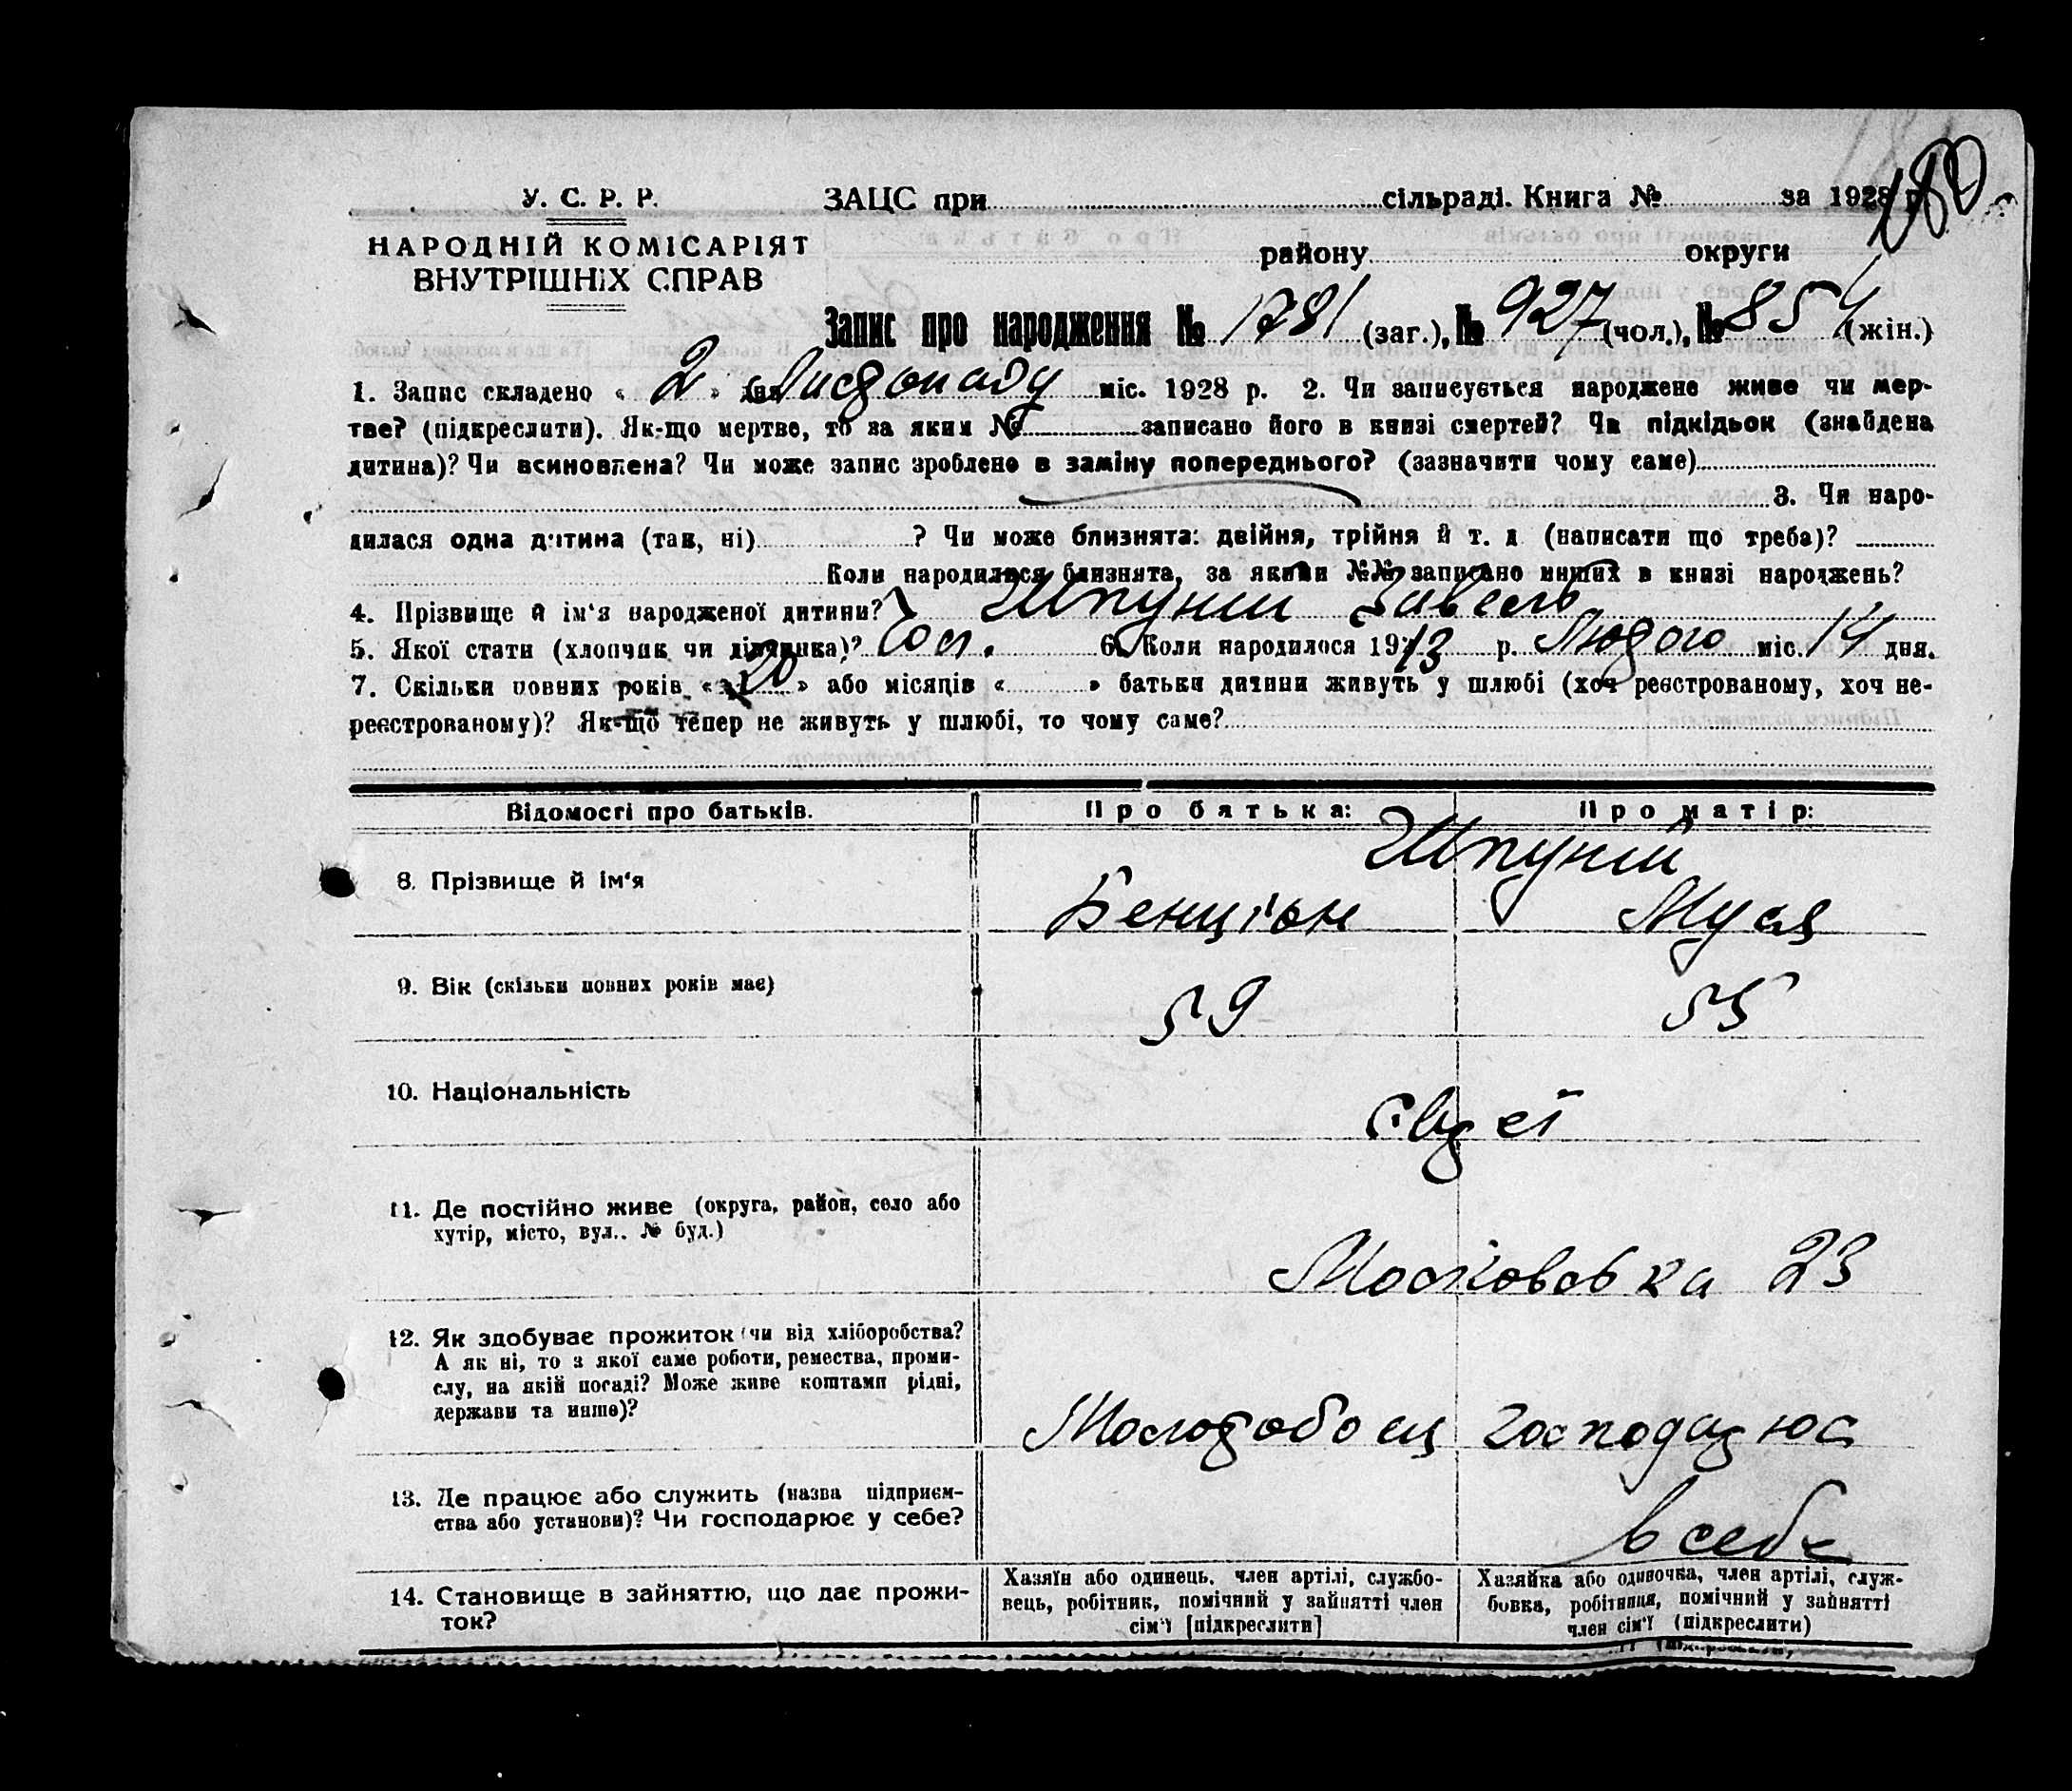 180
У. С. Р. Р.
НАРОДНІЙ КОМІСАРІЯТ
ВНУТРІШНІХ СПРАВ
ЗАЦС при сільраді. Книга № за 1928 р.
району округи
Запис про народження № 1781 (заг.), № 927 (чол.), № 854 (жін.)
1. Запис складено « 2 » дня Листопаду міс. 1928 р. 2. Чи записується народжене живе чи мер-
тве? (підкреслити). Як-що мертве, то за яким № записано його в книзі смертей? Чи підкідьок (знайдена
дитина)? Чи всиновлена? Чи може запис зроблено в заміну попереднього? (зазначити чому саме)
3. Чи наро-
дилася одна дитина (так, ні) ? Чи може близнята: двійня, трійня й т. д. (написати що треба)?
Коли народилися близнята, за якими №№ записано инших в книзі народжень?
4. Прізвище й ім‘я народженої дитини? Шпунт
5. Якої стати (хлопчик чи дівчинка)? 6. Коли народилося 1913 р. Лютого міс. 14 дня.
7. Скільки повних років « 20 » або місяців « » батьки дитини живуть у шлюбі (хоч реєстрованому, хоч не-
реєстрованому)? Як-що тепер не живуть у шлюбі, то чому саме?
Відомості про батьків. Про батька: Про матір:
Шпунт
8. Прізвище й ім‘я Бенціон Муся
9. Вік (скільки повних років має) 59 55
10. Національність євреї
11. Де постійно живе (округа, район, село або
хутір, місто, вул.. № буд.)
Московська 23
12. Як здобуває прожиток (чи від хліборобства?
А як ні, то з якої саме роботи, ремества, проми-
слу, на якій посаді? Може живе коштами рідні,
держави та инше)?
господарює
13. Де працює або служить (назва підприєм-
ства або установи)? Чи господарює у себе?
в себе
14. Становище в зайняттю, що дає прожи-
ток?
Хазяїн або одинець, член артілі, службо-
вець, робітник, помічний у зайнятті член
сім‘ї [підкреслити]
Хазяйка або одиночка, член артілі, служ-
бовка, робітниця, помічний у зайнятті
член сім‘ї (підкреслити)